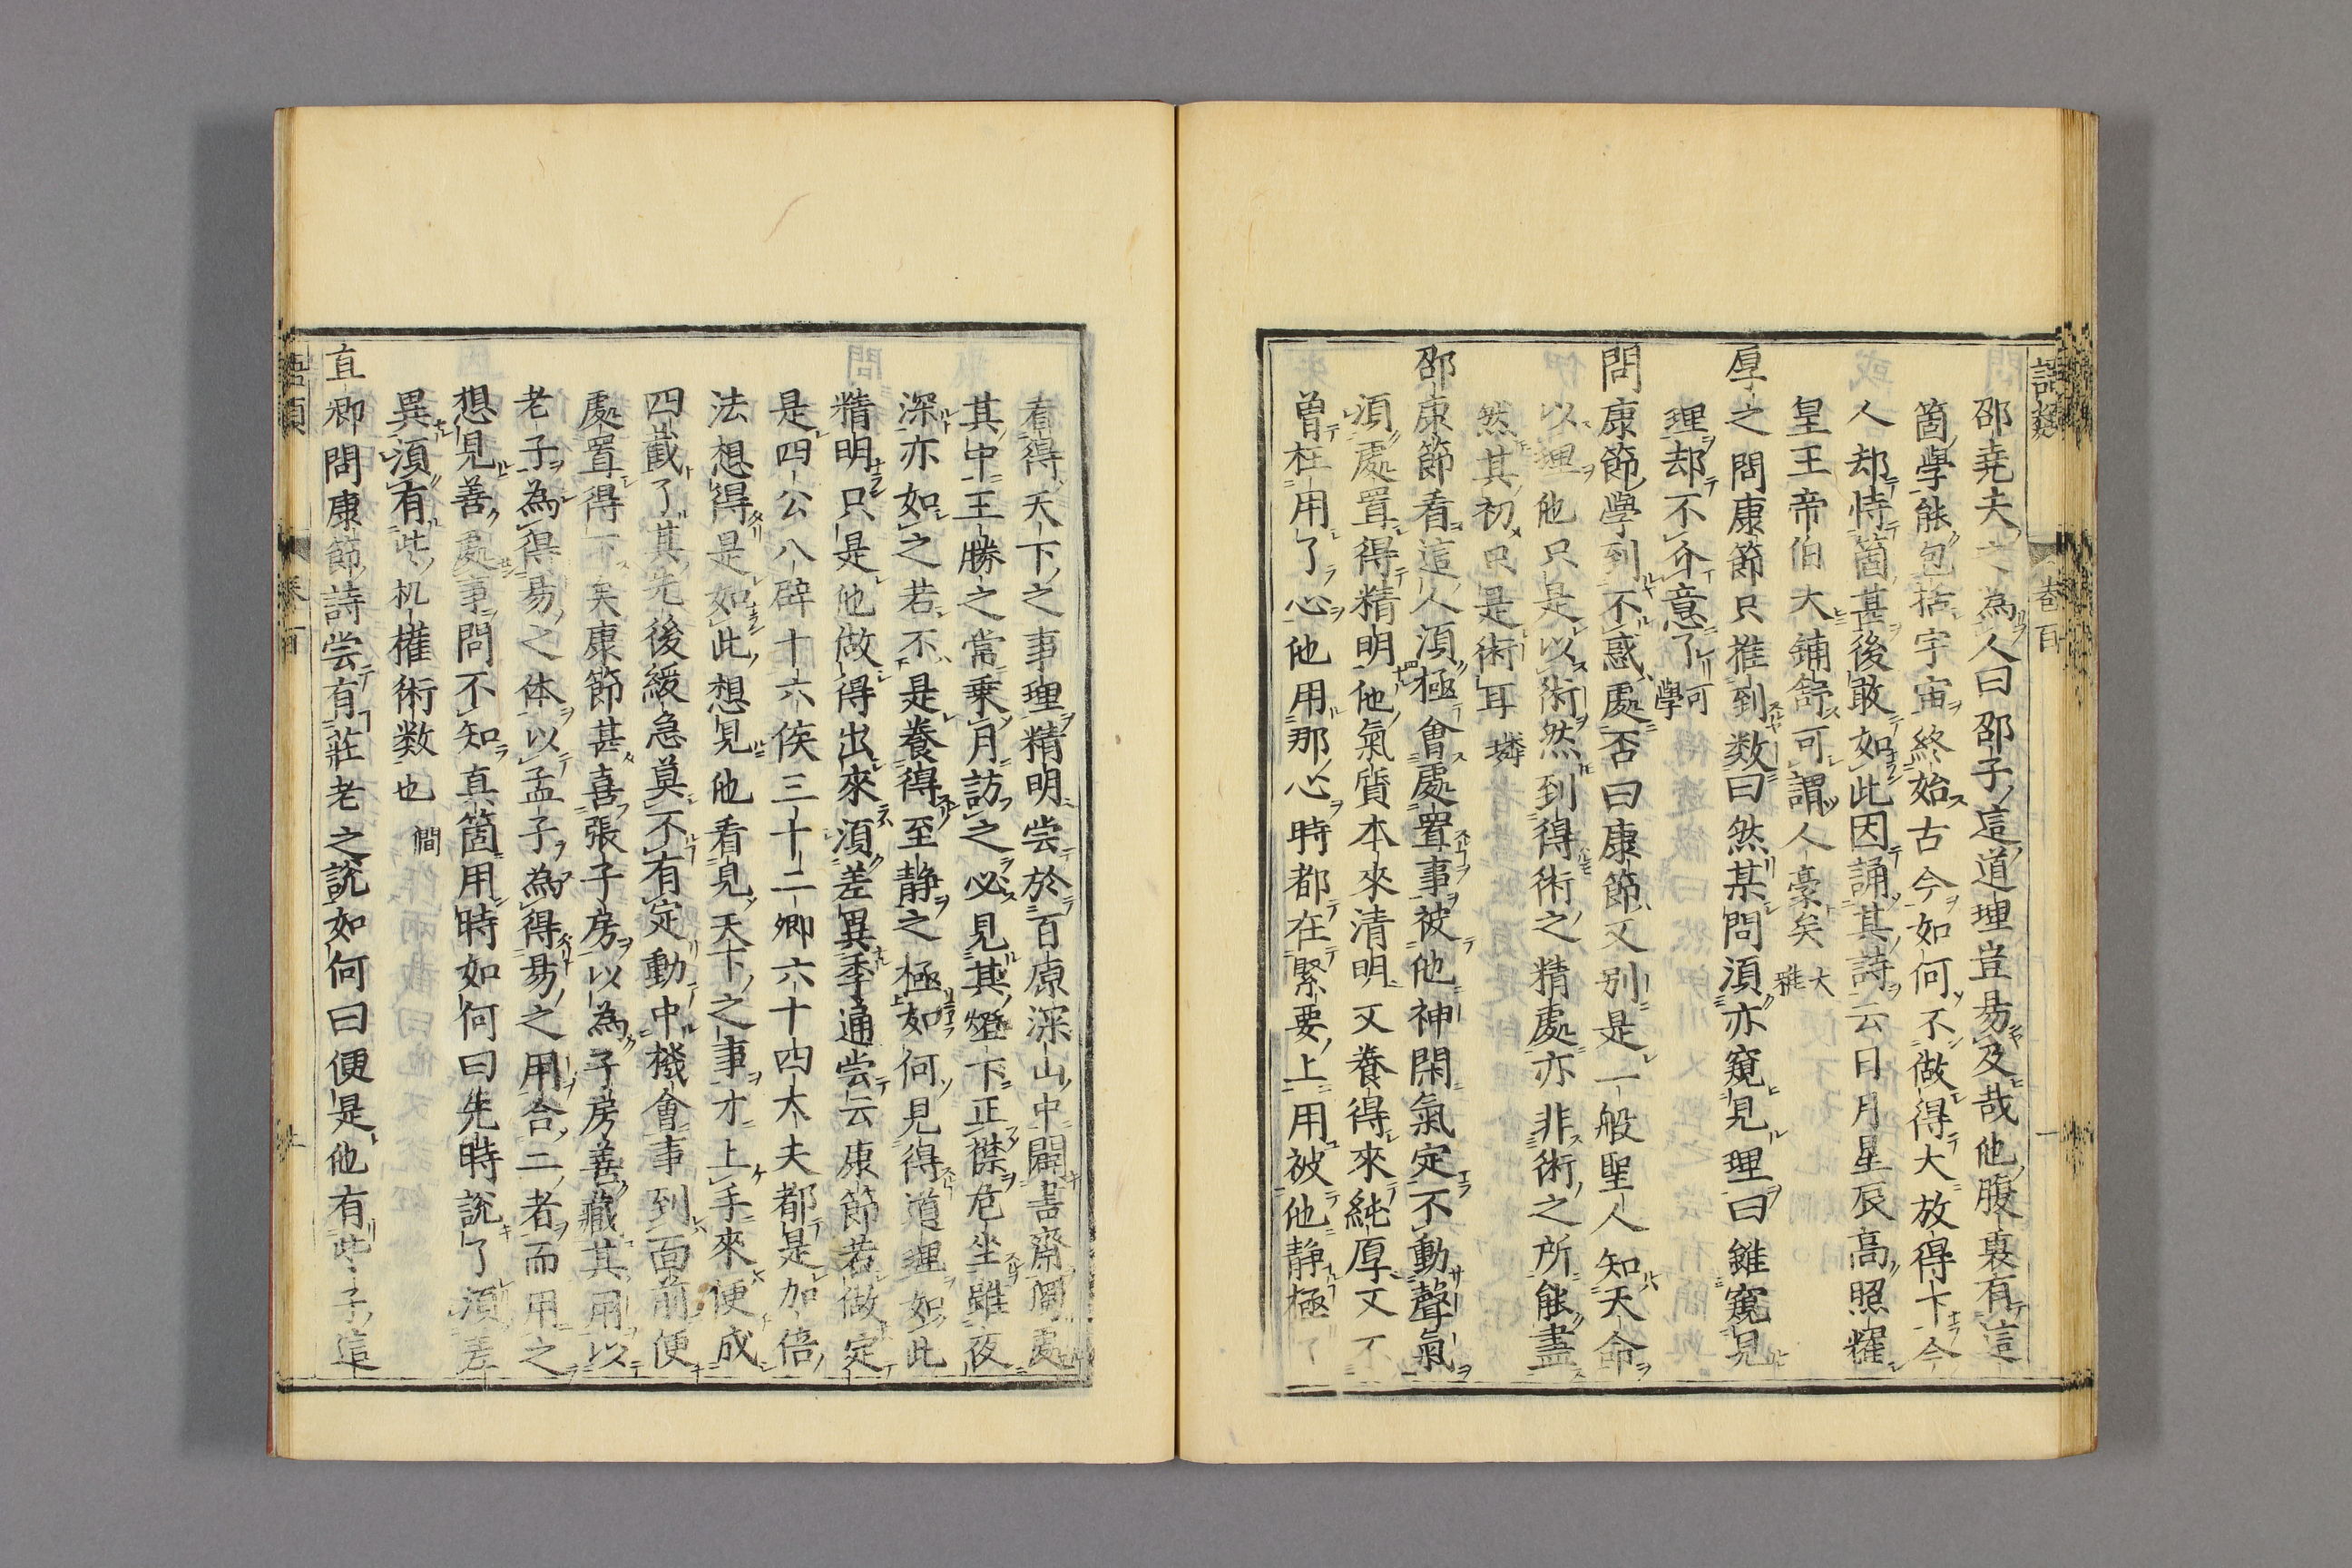 語類
卷百
一
邵堯夫之為人曰邵子這道理豈易及哉他腹裏有這
箇學能包括宇宙終始古今如何不做得大放得下今
人却恃箇甚後敢如此因誦其詩云日月星辰高照耀
皇王帝伯大鋪舒可謂人豪矣大雅
厚之問康節只推到数曰然某問須亦窺見理曰雖窺見
理却不介意了可學
問康節學到不惑處否曰康節又別是一般聖人知天命
以理他只是以術然到得術之精處亦非術之所能盡
然其初只是術耳璘
邵康節看這人須極會處置事被他神閑氣定不動聲氣
須處置得精明他氣質本來清明又養得來純厚又不
曽枉用了心他用那心時都在緊要上用被他静極了
看得天下之事理精明尝於百原深山中闢書齋獨處
其中王勝之常乗月訪之必見其燈下正襟危坐雖夜
深亦如之若不是養得至静之極如何見得道理如此
精明只是他做得出來須差異季通尝云康節若做定
是四公八辟十六侯三十二卿六十四大夫都是加倍
法想得是如此想見他看見天下之事才上手來便成
四截了其先後緩急莫不有定動中機會事到面前便
處置得下矣康節甚喜張子房以為子房善藏其用以
老子為得易之体以孟子為得易之用合二者而用之
想見善處事問不知真箇用時如何曰先時説了須差
異須有些机權術数也僩
直卿問康節詩尝有莊老之説如何曰便是他有些子這
語類
卷百